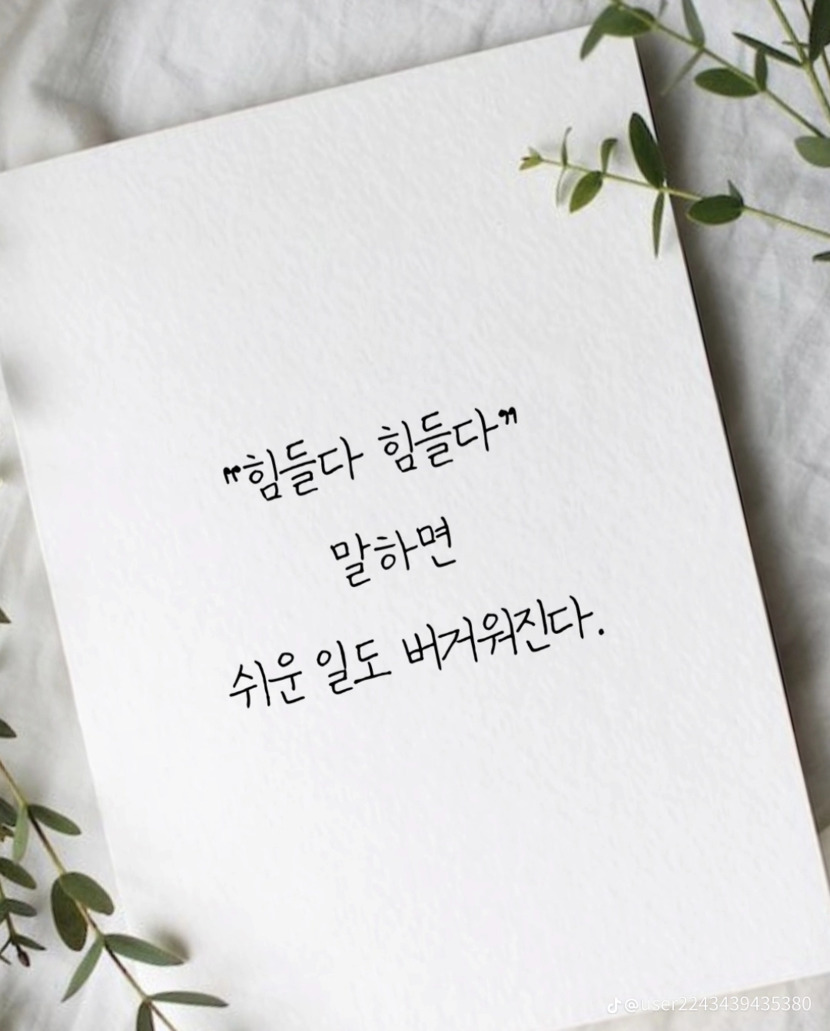 "힘들다 힘들다"
말하면
쉬운 일도 버거워진다.
@user2243439435380